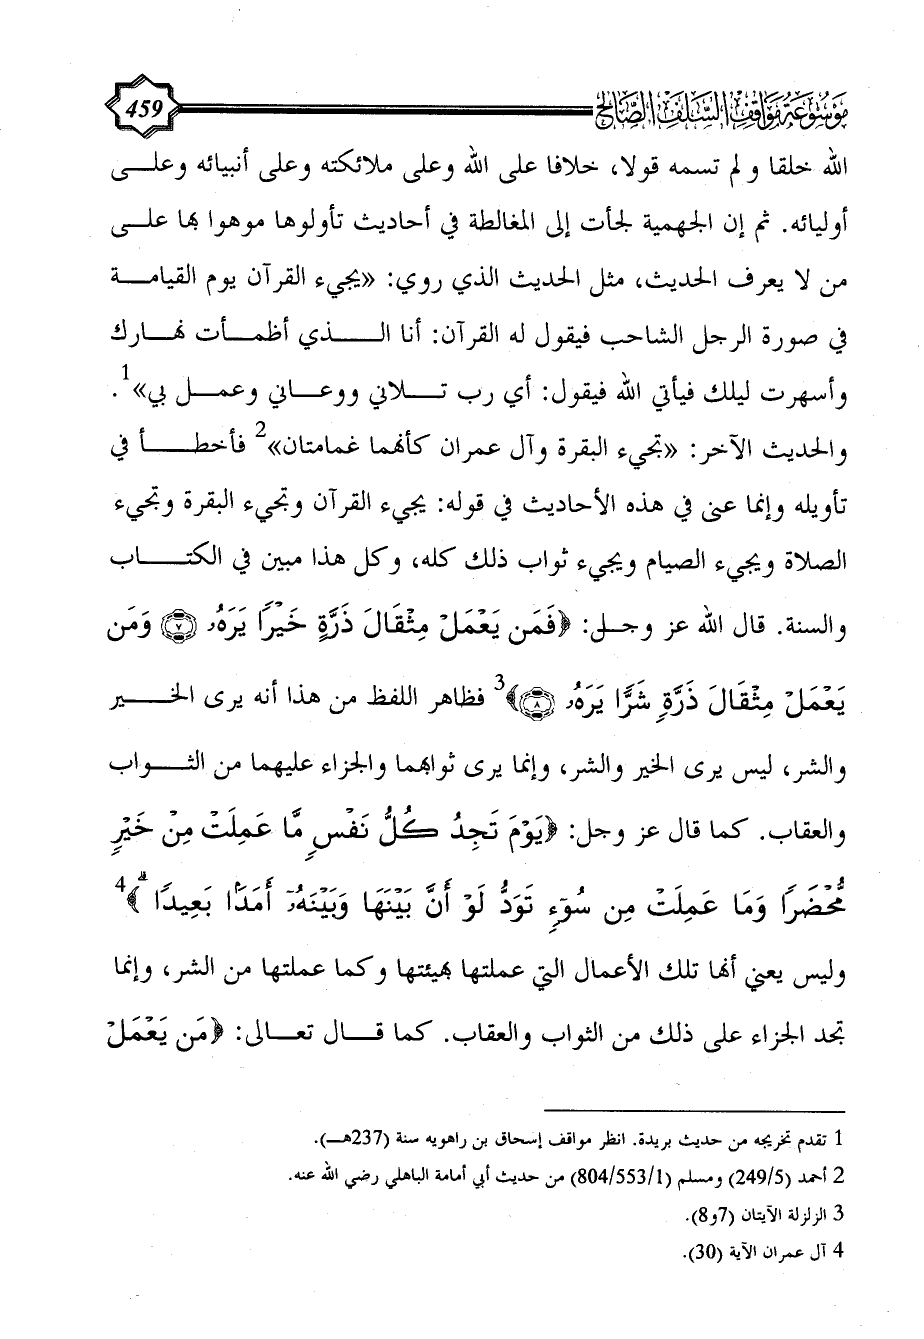 موسوعة مواقف السلف الصالح
459
الله خلقا و لم تسمه قولا، خلافا على الله وعلى ملائكته وعلى أنبيائه وعلــى
أوليائه. ثم إن الجهمية لجأت إلى المغالطة في أحاديث تأولوها موهوا بها علــى
من لا يعرف الحديث، مثل الحديث الذي روي: «يجيء القرآن يوم القيامــة
في صورة الرجل الشاحب فيقول له القرآن: أنا الـــذي أظمــأت نهــارك
وأسهرت ليلك فيأتي الله فيقول: أي رب تــلاني ووعــاني وعمــل بي»1.
والحديث الآخر: «تجيء البقرة وآل عمران كأنهما غمامتان»2 فأخطــأ في
تأويله وإنما عنى في هذه الأحاديث في قوله: يجيء القرآن وتجيء البقرة وتجيء
الصلاة ويجيء الصيام ويجيء ثواب ذلك كله، وكل هذا مبين في الكتــاب
والسنة. قال الله عز وجــل: ﴿فَمَن يَعْمَلْ مِثْقَالَ ذَرَّةٍ خَيْرًا يَرَهُۥ ۝٧ وَمَن
يَعْمَلْ مِثْقَالَ ذَرَّةٍ شَرًّا يَرَهُۥ ۝٨﴾3 فظاهر اللفظ من هذا أنه يرى الخــير
والشر، ليس يرى الخير والشر، وإنما يرى ثوابهما والجزاء عليهما من الثــواب
والعقاب. كما قال عز وجل: ﴿يَوْمَ تَجِدُ كُلُّ نَفْسٍ مَّا عَمِلَتْ مِنْ خَيْرٍ
مُّحْضَرًا وَمَا عَمِلَتْ مِن سُوٓءٍ تَوَدُّ لَوْ أَنَّ بَيْنَهَا وَبَيْنَهُۥٓ أَمَدًۢا بَعِيدًا ۗ﴾4
وليس يعني أنها تلك الأعمال التي عملتها بهيئتها وكما عملتها من الشر، وإنما
تجد الجزاء على ذلك من الثواب والعقاب. كما قــال تعــالى: ﴿مَن يَعْمَلْ
1 تقدم تخريجه من حديث بريدة. انظر مواقف إسحاق بن راهويه سنة (237هــ).
2 أحمد (249/5) ومسلم (804/553/1) من حديث أبي أمامة الباهلي رضي الله عنه.
3 الزلزلة الآيتان (7و8).
4 آل عمران الآية (30).